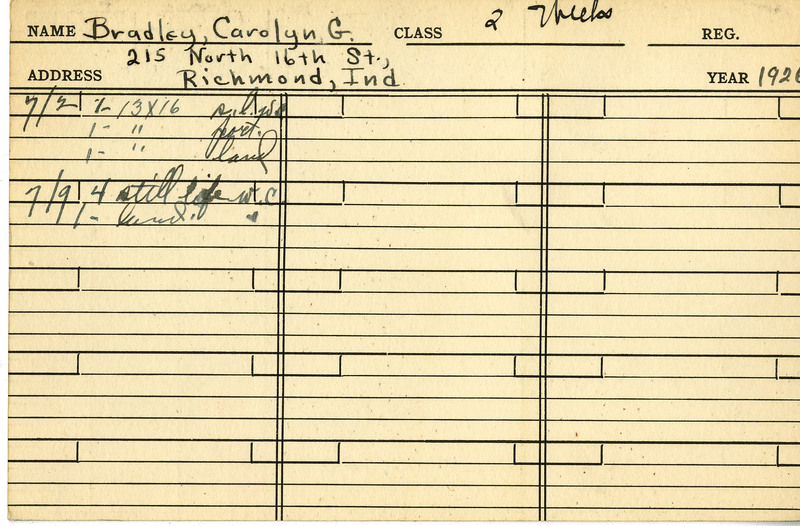 NAME Bradley, Carolyn G. CLASS 2 Weeks REG.
215 North 16th St.,
ADDRESS Richmond, Ind YEAR 1926
7/2 2- 13X16
1- " port.
1- " land
7/9 4 still life w.c.
1- land. "